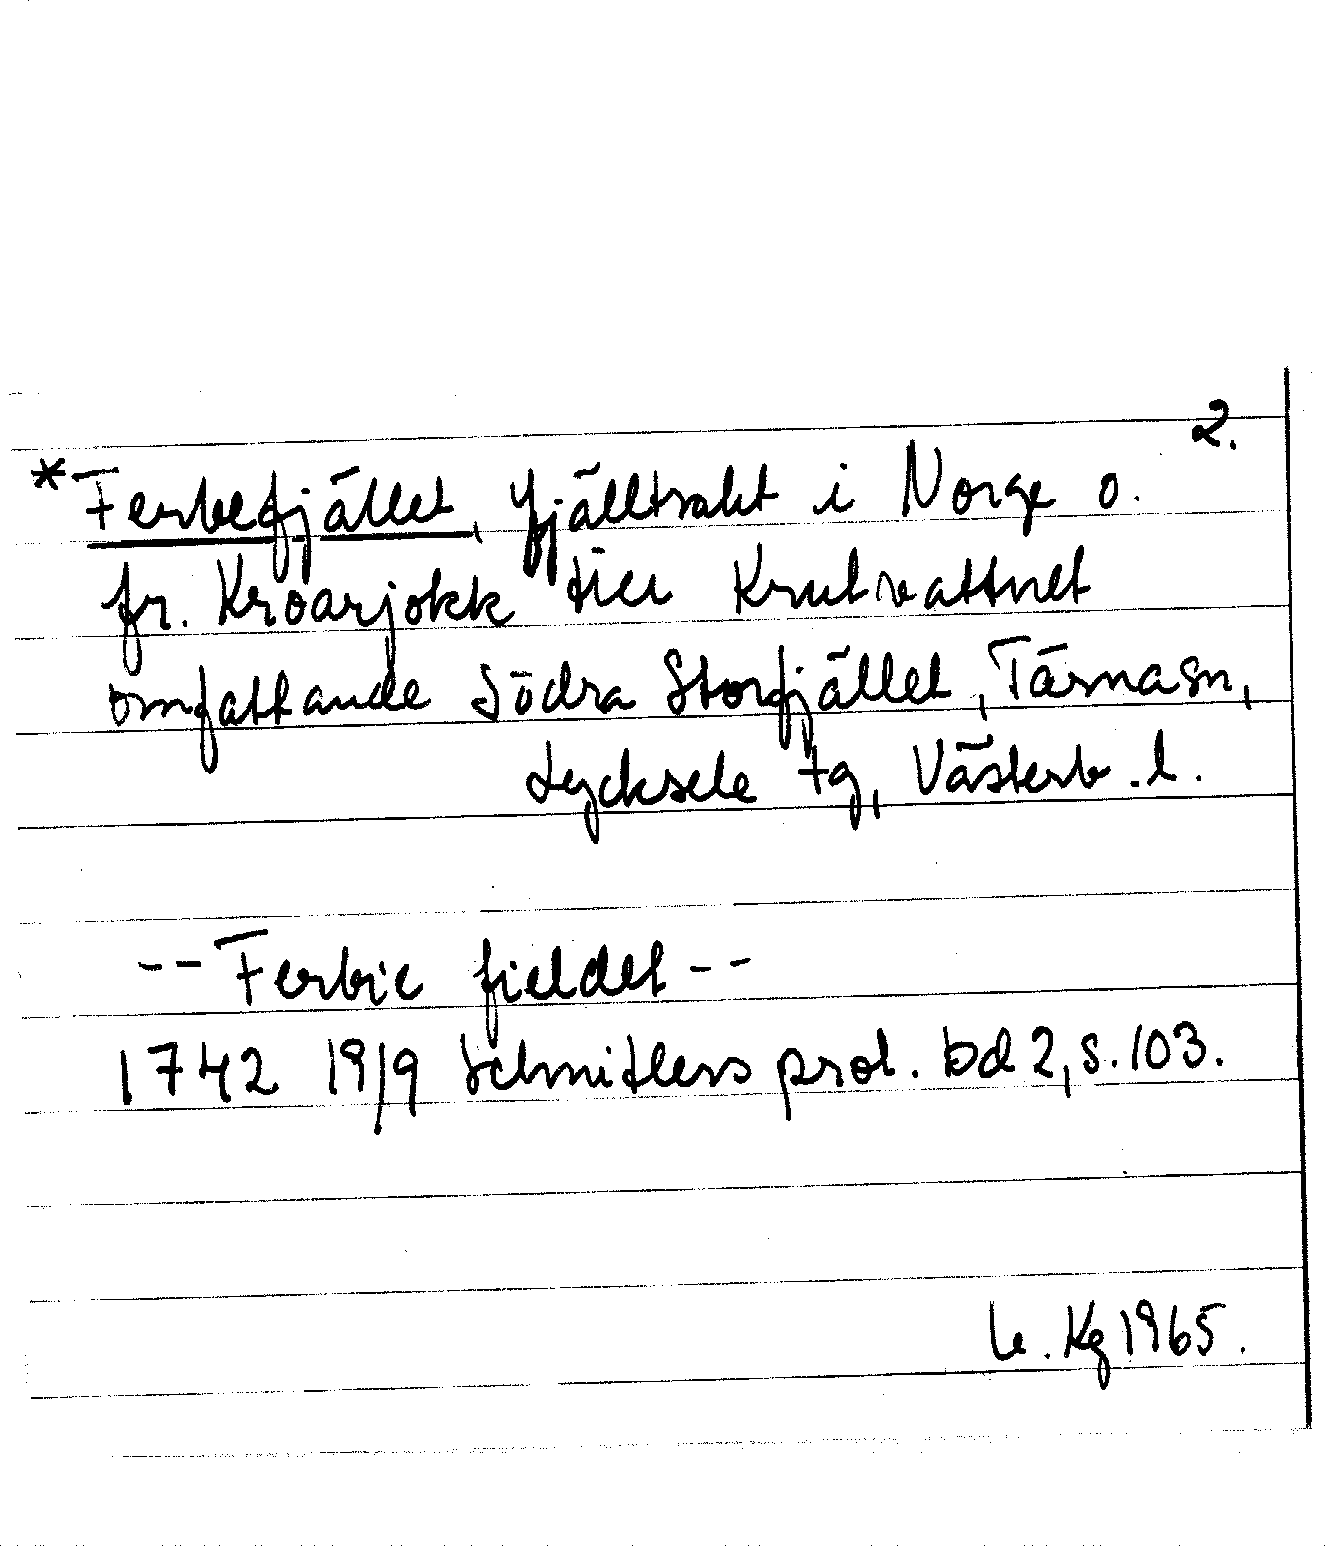 2.
*Ferbefjället, fjälltrakt i Norge o.
fr. Kroarjokk till Krutvattnet
omfattande Södra Storfjället, Tärnasn,
Lycksele tg, Västerb.l.
-- Ferbie fieldet --
1742 19/9 Schnitlers prot. bd 2, s. 103.
Kg 1965.